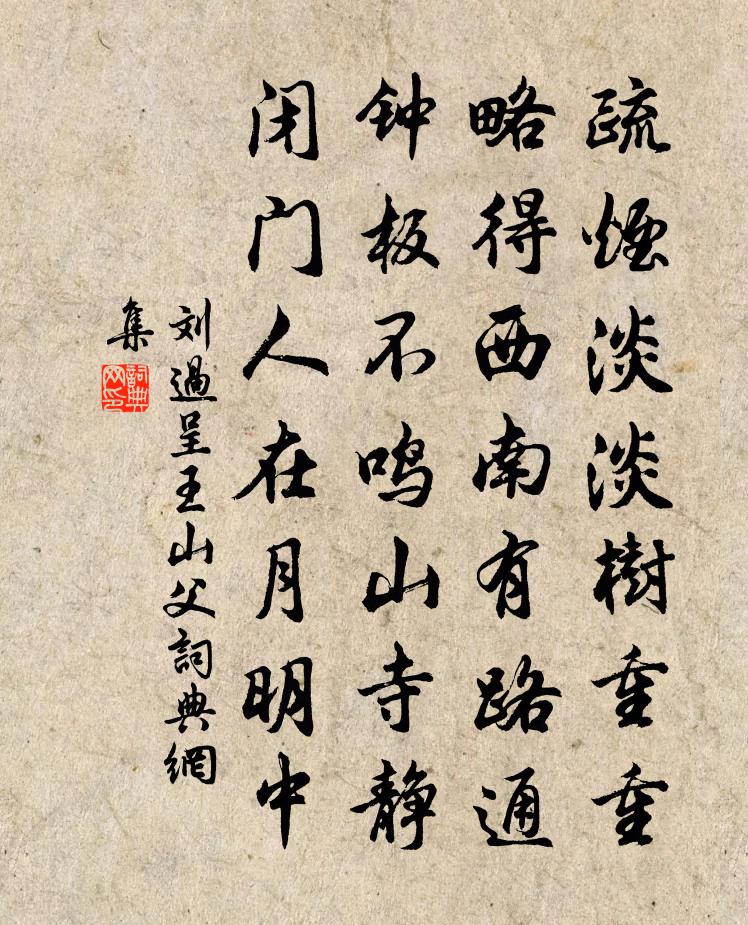 疏煙淡淡樹重重
略得西南有路通
钟板不鸣山寺静
闭门人在月明中
刘過呈王山父詞典網
集
詞典
网印